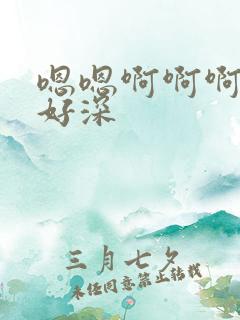 嗯嗯啊啊啊
好深
三月七夕
未经同意禁止转载